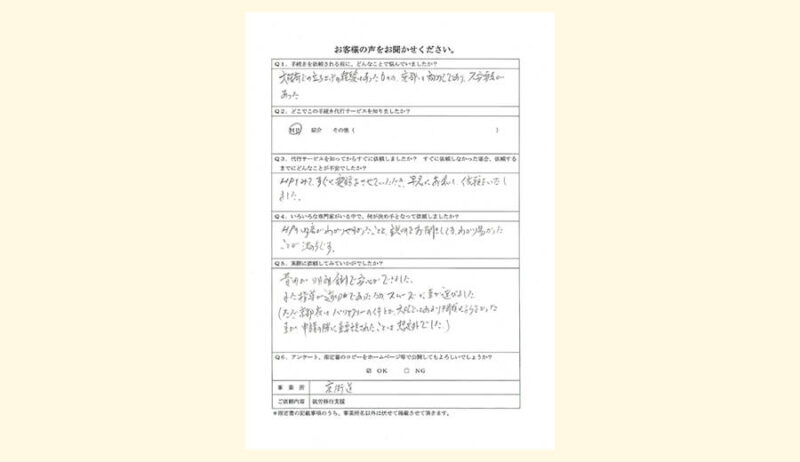 お客様の声をお聞かせください。
Q1．手続きを依頼される前に、どんなことで悩んでいましたか？
大阪府での立ち上げの経験はあったものの、京都は初めてであり、不安要素が
あった
Q2．どこでこの手続き代行サービスを知りましたか？
HP 紹介 その他（ ）
Q3．代行サービスを知ってからすぐに依頼しましたか？ すぐに依頼しなかった場合、依頼する
までにどんなことが不安でしたか？
HPをみて、すぐに連絡させていただき、早急にお会いし、依頼をいたし
ました。
Q4．いろいろな専門家がいる中で、何が決め手となって依頼しましたか？
HPの内容がわかりやすかったことと、説明をお聞きしてもわかり易かった
ことが決め手です。
Q5．実際に依頼してみていかがでしたか？
費用が明朗会計で安心ができました。
また指導が適切であったため、スムーズに事が運びました
(ただ京都府はバリアフリーの条件とか、大阪ではあまり問題にならなかった
事が申請の際に重要視されたことは想定外でした。)
Q6．アンケート、指定書のコピーをホームページ等で公開してもよろしいでしょうか？
☑ OK □ NG
事業所 京街道
ご依頼内容 就労移行支援
＊指定書の記載事項のうち、事業所名以外は伏せて掲載させて頂きます。